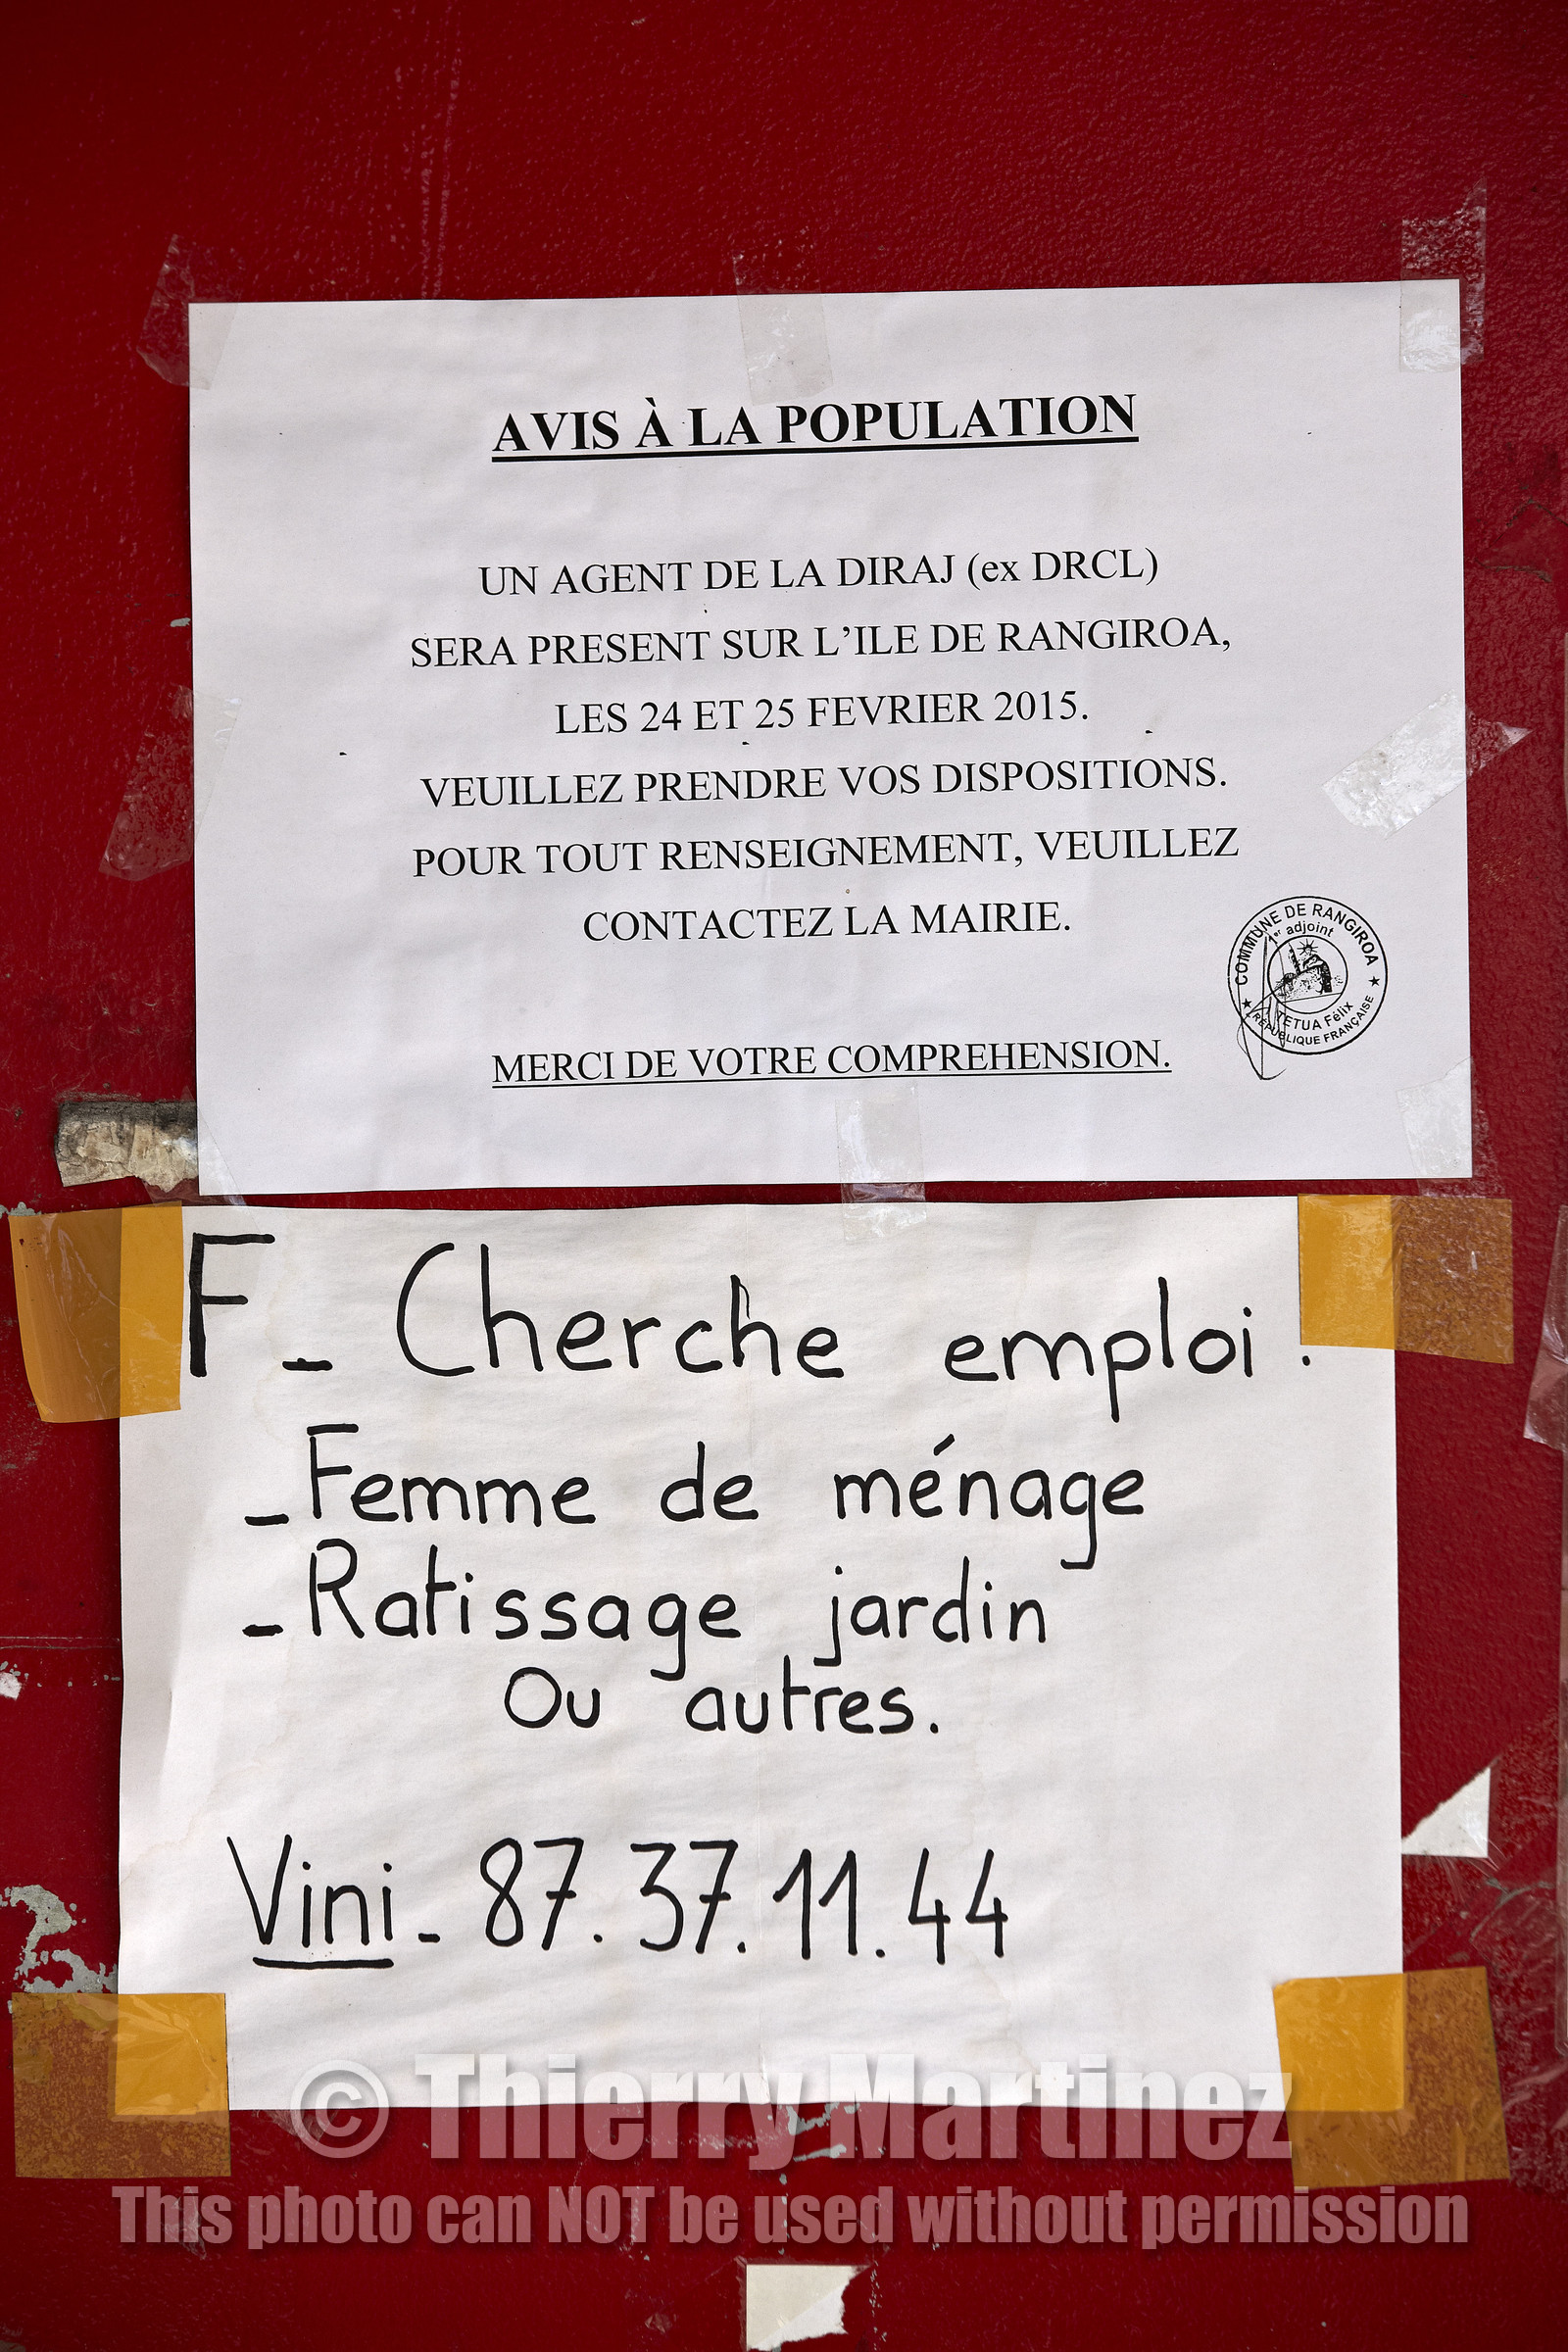 AVIS À LA POPULATION
UN AGENT DE LA DIRAJ (ex DRCL)
SERA PRESENT SUR L'ILE DE RANGIROA,
LES 24 ET 25 FEVRIER 2015.
VEUILLEZ PRENDRE VOS DISPOSITIONS.
POUR TOUT RENSEIGNEMENT, VEUILLEZ
CONTACTEZ LA MAIRIE.
COMMUNE DE RANGIROA
1er adjoint
TETUA Félix
RÉPUBLIQUE FRANÇAISE
MERCI DE VOTRE COMPREHENSION.
F - Cherche emploi.
- Femme de ménage
- Ratissage jardin
Ou autres.
Vini - 87.37.11.44
© Thierry Martinez
This photo can NOT be used without permission